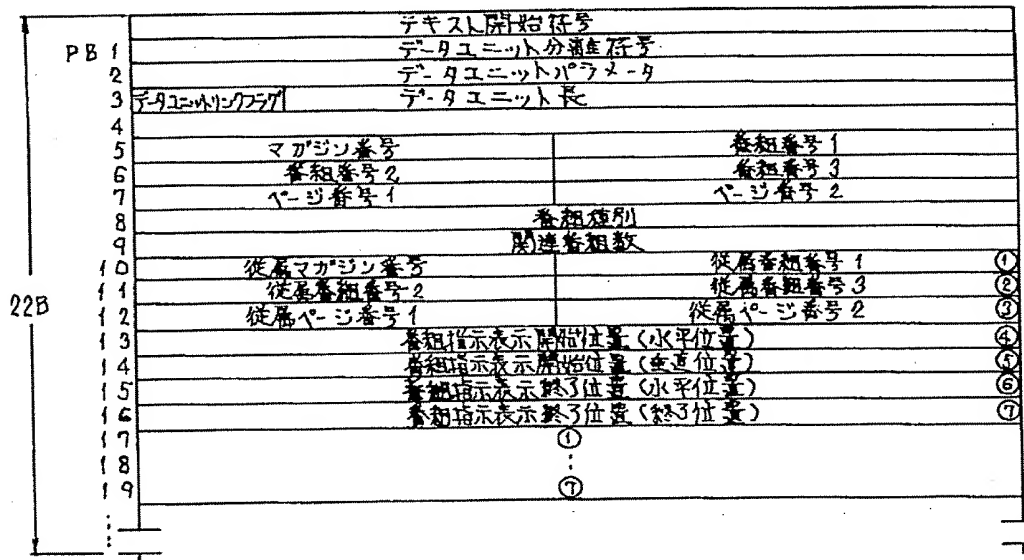 テキスト開始符号
PB 1 データユニット分離符号
2 データユニットパラメータ
3 データユニットリンクフラグ データユニット長
4
5 マガジン番号 番組番号1
6 番組番号2 番組番号3
7 ページ番号1 ページ番号2
8 番組種別
9 関連番組数
10 従属マガジン番号 従属番組番号1 ①
11 従属番組番号2 従属番組番号3 ②
12 従属ページ番号1 従属ページ番号2 ③
13 番組指示表示開始位置(水平位置) ④
14 番組指示表示開始位置(垂直位置) ⑤
15 番組指示表示終了位置(水平位置) ⑥
16 番組指示表示終了位置(終了位置) ⑦
22B
17 ①
18 ⋮
19 ⑦
⋮